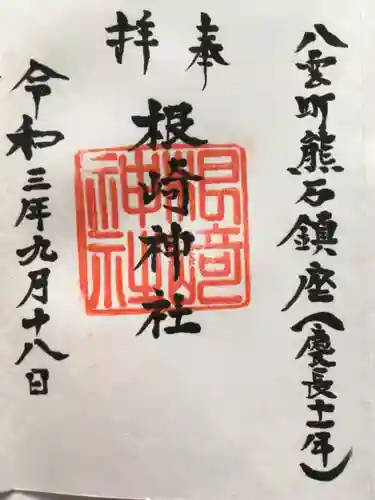 八雲町熊石鎮座(慶長十一年)
奉拝
根崎神社
根崎神社
令和三年九月十八日